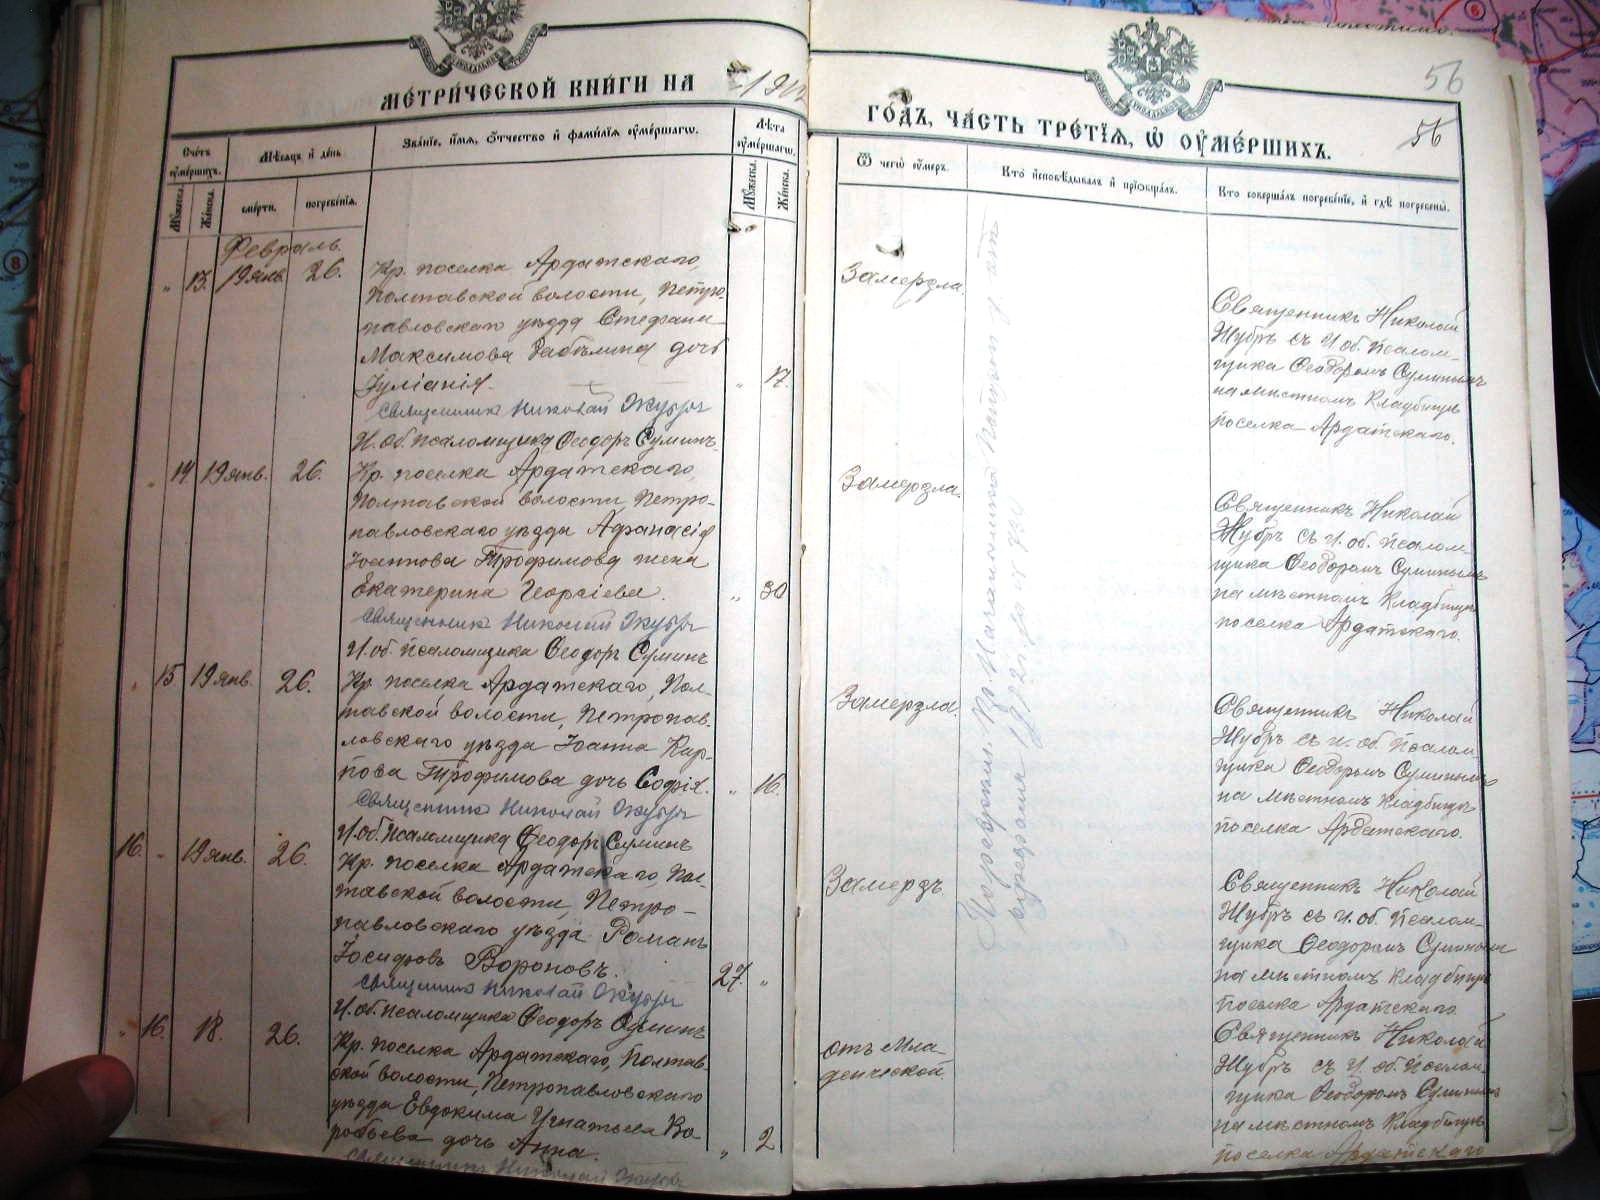 МЕТРИЧЕСКОЙ КНИГИ НА 1912
ГОДЪ, ЧАСТЬ ТРЕТІЯ, Ѡ ОУМЕРШИХЪ.
56
56
Счетъ оумершихъ.
Мѣсяцъ и день
Званіе, имя, отчество и фамилія оумершагѡ.
Лѣта оумершагѡ.
Мужеска.
Женска.
смерти.
погребенія.
Мужеска.
Женска.
Ѿ чегѡ оумеръ.
Кто исповѣдывалъ и пріобщалъ.
Кто совершалъ погребеніе, и гдѣ погребены.
Февраль.
" 13. 19 янв. 26.
Кр. поселка Ардатскаго,
Полтавской волости, Петро-
павловскаго уѣзда Стефана
Максимова дочь
Іуліанія. " 17.
Священникъ Николай Жубръ
И. об. псаломщика Ѳеодоръ Суминъ
Замерзла.
Священникъ Николай
Жубръ съ И. об. псалом-
щика Ѳеодоромъ Суминымъ
на мѣстномъ кладбищѣ
поселка Ардатскаго.
" 14 19 янв. 26.
Кр. поселка Ардатскаго,
Полтавской волости, Петро-
павловскаго уѣзда Афанасія
Іоаннова Трофимова жена
Екатерина Георгіева. " 30
Священникъ Николай Жубръ
И. об. псаломщика Ѳеодоръ Суминъ
Замерзла.
Священникъ Николай
Жубръ съ И. об. псалом-
щика Ѳеодоромъ Суминымъ
на мѣстномъ кладбищѣ
поселка Ардатскаго.
" 15 19 янв. 26.
Кр. поселка Ардатскаго, Пол-
тавской волости, Петропав-
ловскаго уѣзда Іоанна Кар-
пова Трофимова дочь Софія. " 16.
Священникъ Николай Жубръ
И. об. псаломщика Ѳеодоръ Суминъ
Замерзла.
Священникъ Николай
Жубръ съ И. об. псалом-
щика Ѳеодоромъ Суминымъ
на мѣстномъ кладбищѣ
поселка Ардатскаго.
16. " 19 янв. 26.
Кр. поселка Ардатскаго, Пол-
тавской волости, Петро-
павловскаго уѣзда Романъ
Іосифовъ Вороновъ. 27. "
Священникъ Николай Жубръ
И. об. псаломщика Ѳеодоръ Суминъ
Замерзъ.
Священникъ Николай
Жубръ съ И. об. псалом-
щика Ѳеодоромъ Суминымъ
на мѣстномъ кладбищѣ
поселка Ардатскаго
" 16. 18. 26.
Кр. поселка Ардатскаго, Полтав-
ской волости, Петропавловскаго
уѣзда Евдокима Игнатьева Во-
робьева дочь Анна. " 2
Священникъ Николай Жубръ
отъ мла-
денческой.
Священникъ Николай
Жубръ съ И. об. псалом-
щика Ѳеодоромъ Суминымъ
на мѣстномъ кладбищѣ
поселка Ардатскаго